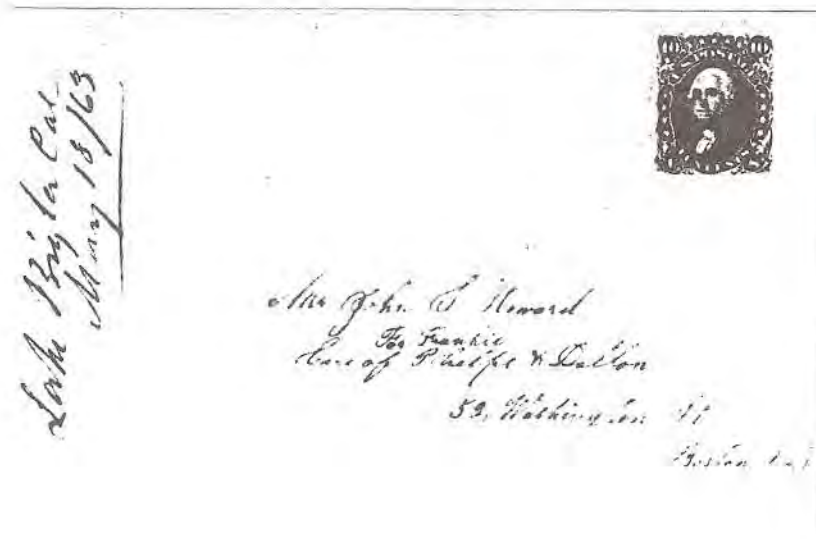 Lake Bigler Cal
May 18/63
10 10
U.S. POSTAGE
Mr John S Howard
For Frankie
Care of Phelps & Dalton
52, Washington St
Boston